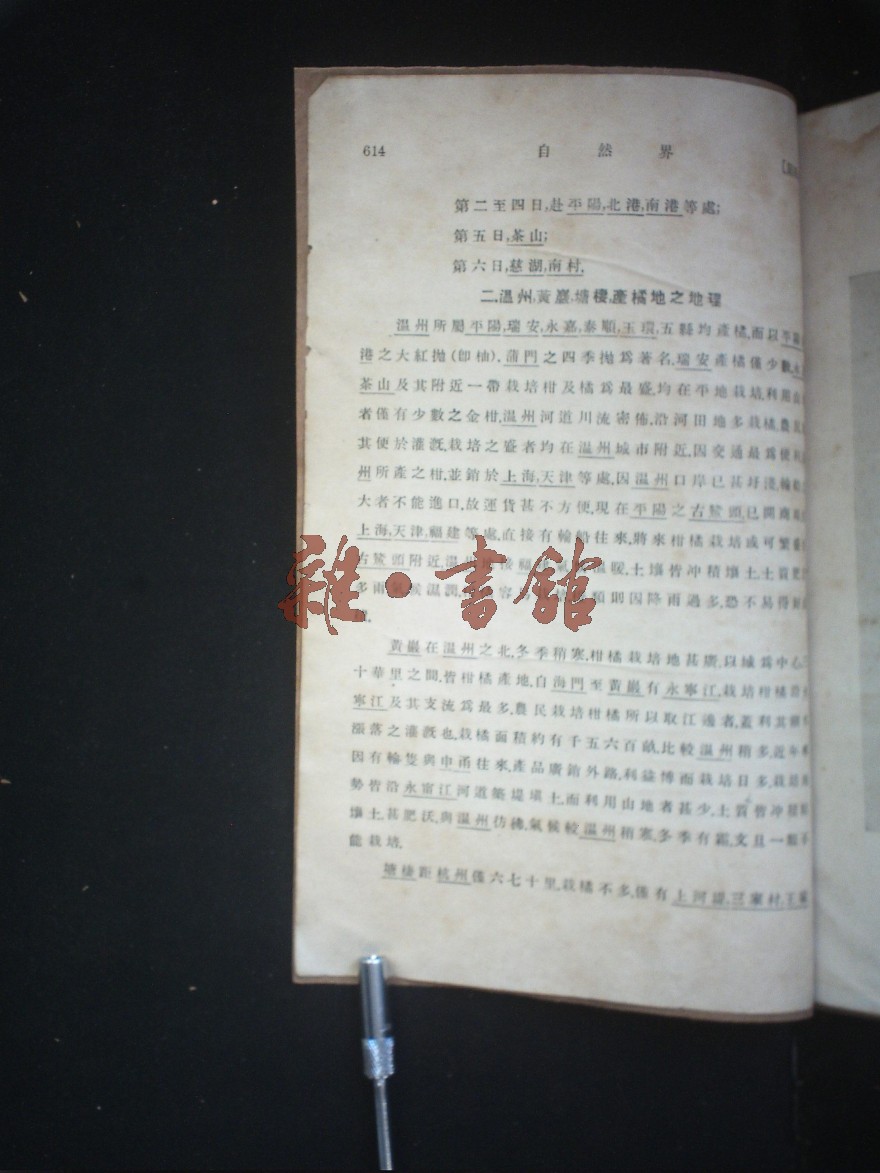 614 自然界
第二至四日,赴平陽,北港,南港等處;
第五日,茶山;
第六日,慈湖,南村.
二,溫州,黃巖,塘棲,產橘地之地理
溫州所屬平陽,瑞安,永嘉,泰順,玉環,五縣均產橘,而以平陽
港之大紅抛(卽柚),蒲門之四季抛爲著名,瑞安產橘僅少數,永
茶山及其附近一帶栽培柑及橘爲最盛,均在平地栽培,利用山
者僅有少數之金柑,溫州河道川流密佈,沿河田地多栽橘,農民
其便於灌漑,栽培之盛者均在溫州城市附近,因交通最爲便利
州所產之柑,並銷於上海,天津等處,因溫州口岸已甚圩淺,輪船
大者不能進口,故運貨甚不方便,現在平陽之古鰲頭已開商
上海,天津,福建等處,直接有輪船往來,將來柑橘栽培或可繁
古鰲頭附近,溫 溫暖,土壤皆冲積壤土,土質肥
多雨,氣候濕潤, 類則因降雨過多,恐不易得
雜·書館
黃巖在溫州之北,冬季稍寒,柑橘栽培地甚廣,以城爲中心,三
十華里之間,皆柑橘產地,自海門至黃巖有永寧江,栽培柑橘沿
寧江及其支流爲最多,農民栽培柑橘所以取江邊者,蓋利其潮
漲落之灌漑也,栽橘面積約有千五六百畝,比較溫州稍多,近年
因有輪隻與申甬往來,產品廣銷外路,利益博而栽培日多,栽培
勢皆沿永甯江河道築堤填土,而利用山地者甚少,土質皆冲積
壤土,甚肥沃,與溫州彷彿,氣候較溫州稍寒,冬季有霜,文旦一類不
能栽培.
塘棲距杭州僅六七十里,栽橘不多,僅有上河,三家村,王